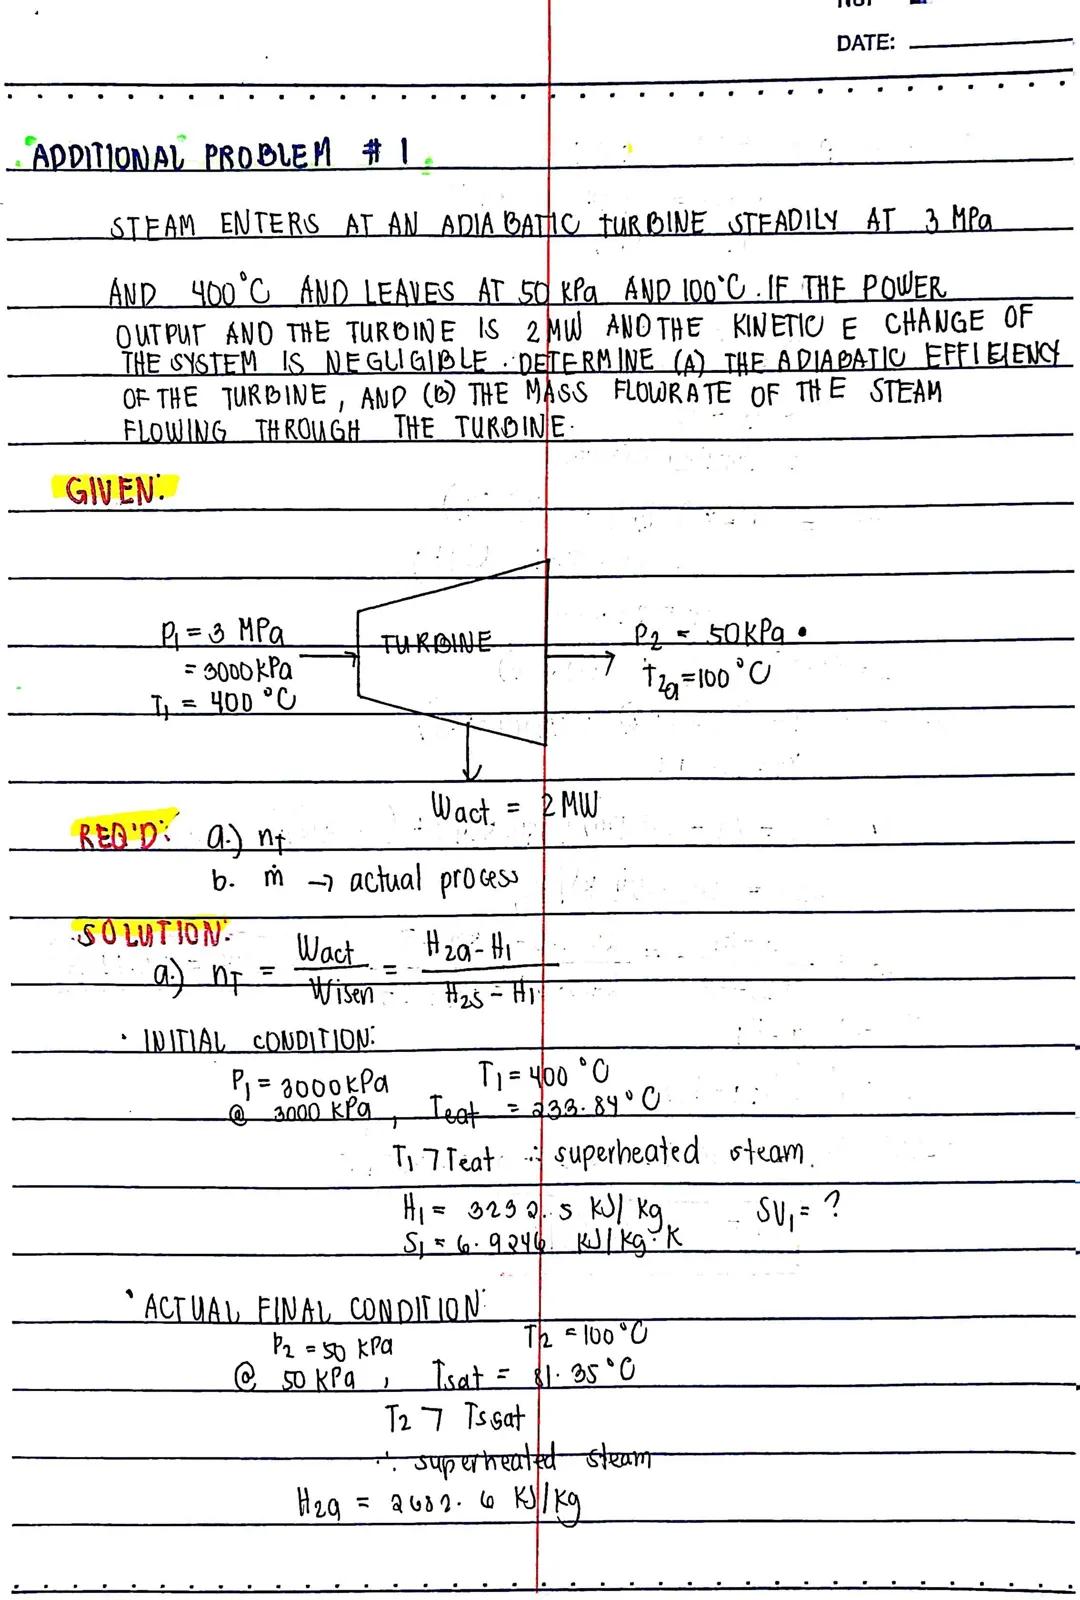 DATE:
ADDITIONAL PROBLEM # 1
STEAM ENTERS AT AN ADIABATIC TURBINE STEADILY AT 3 MPa
AND 400°C AND LEAVES AT 50 KPa AND 100°C. IF THE POWER
OUTPUT AND THE TURBINE IS 2 MW AND THE KINETIC E CHANGE OF
THE SYSTEM IS NEGLIGIBLE. DETERMINE (A) THE ADIABATIC EFFIEIENCY
OF THE TURBINE, AND (B) THE MASS FLOWRATE OF THE STEAM
FLOWING THROUGH THE TURBINE.
GIVEN:
P1 = 3 MPa
= 3000 KPa
T1 = 400 °C
TURBINE
P2 = 50KPa
T2a = 100°C
Wact. = 2 MW
REQ'D: a.) nT
b. ṁ → actual process
SOLUTION:
a.) nT = Wact / Wisen = H2a - H1 / H2s - H1
· INITIAL CONDITION:
P1 = 3000KPa T1 = 400 °C
@ 3000 KPa, Tsat = 233.84°C
T1 > Tsat ∴ superheated steam.
H1 = 3232.5 KJ/Kg SV1 = ?
S1 = 6.9246 KJ/Kg·K
· ACTUAL FINAL CONDITION:
P2 = 50 KPa T2 = 100°C
@ 50 KPa, Tsat = 81.35°C
T2 > Tssat
∴ superheated steam
H2a = 2682.6 KJ/Kg